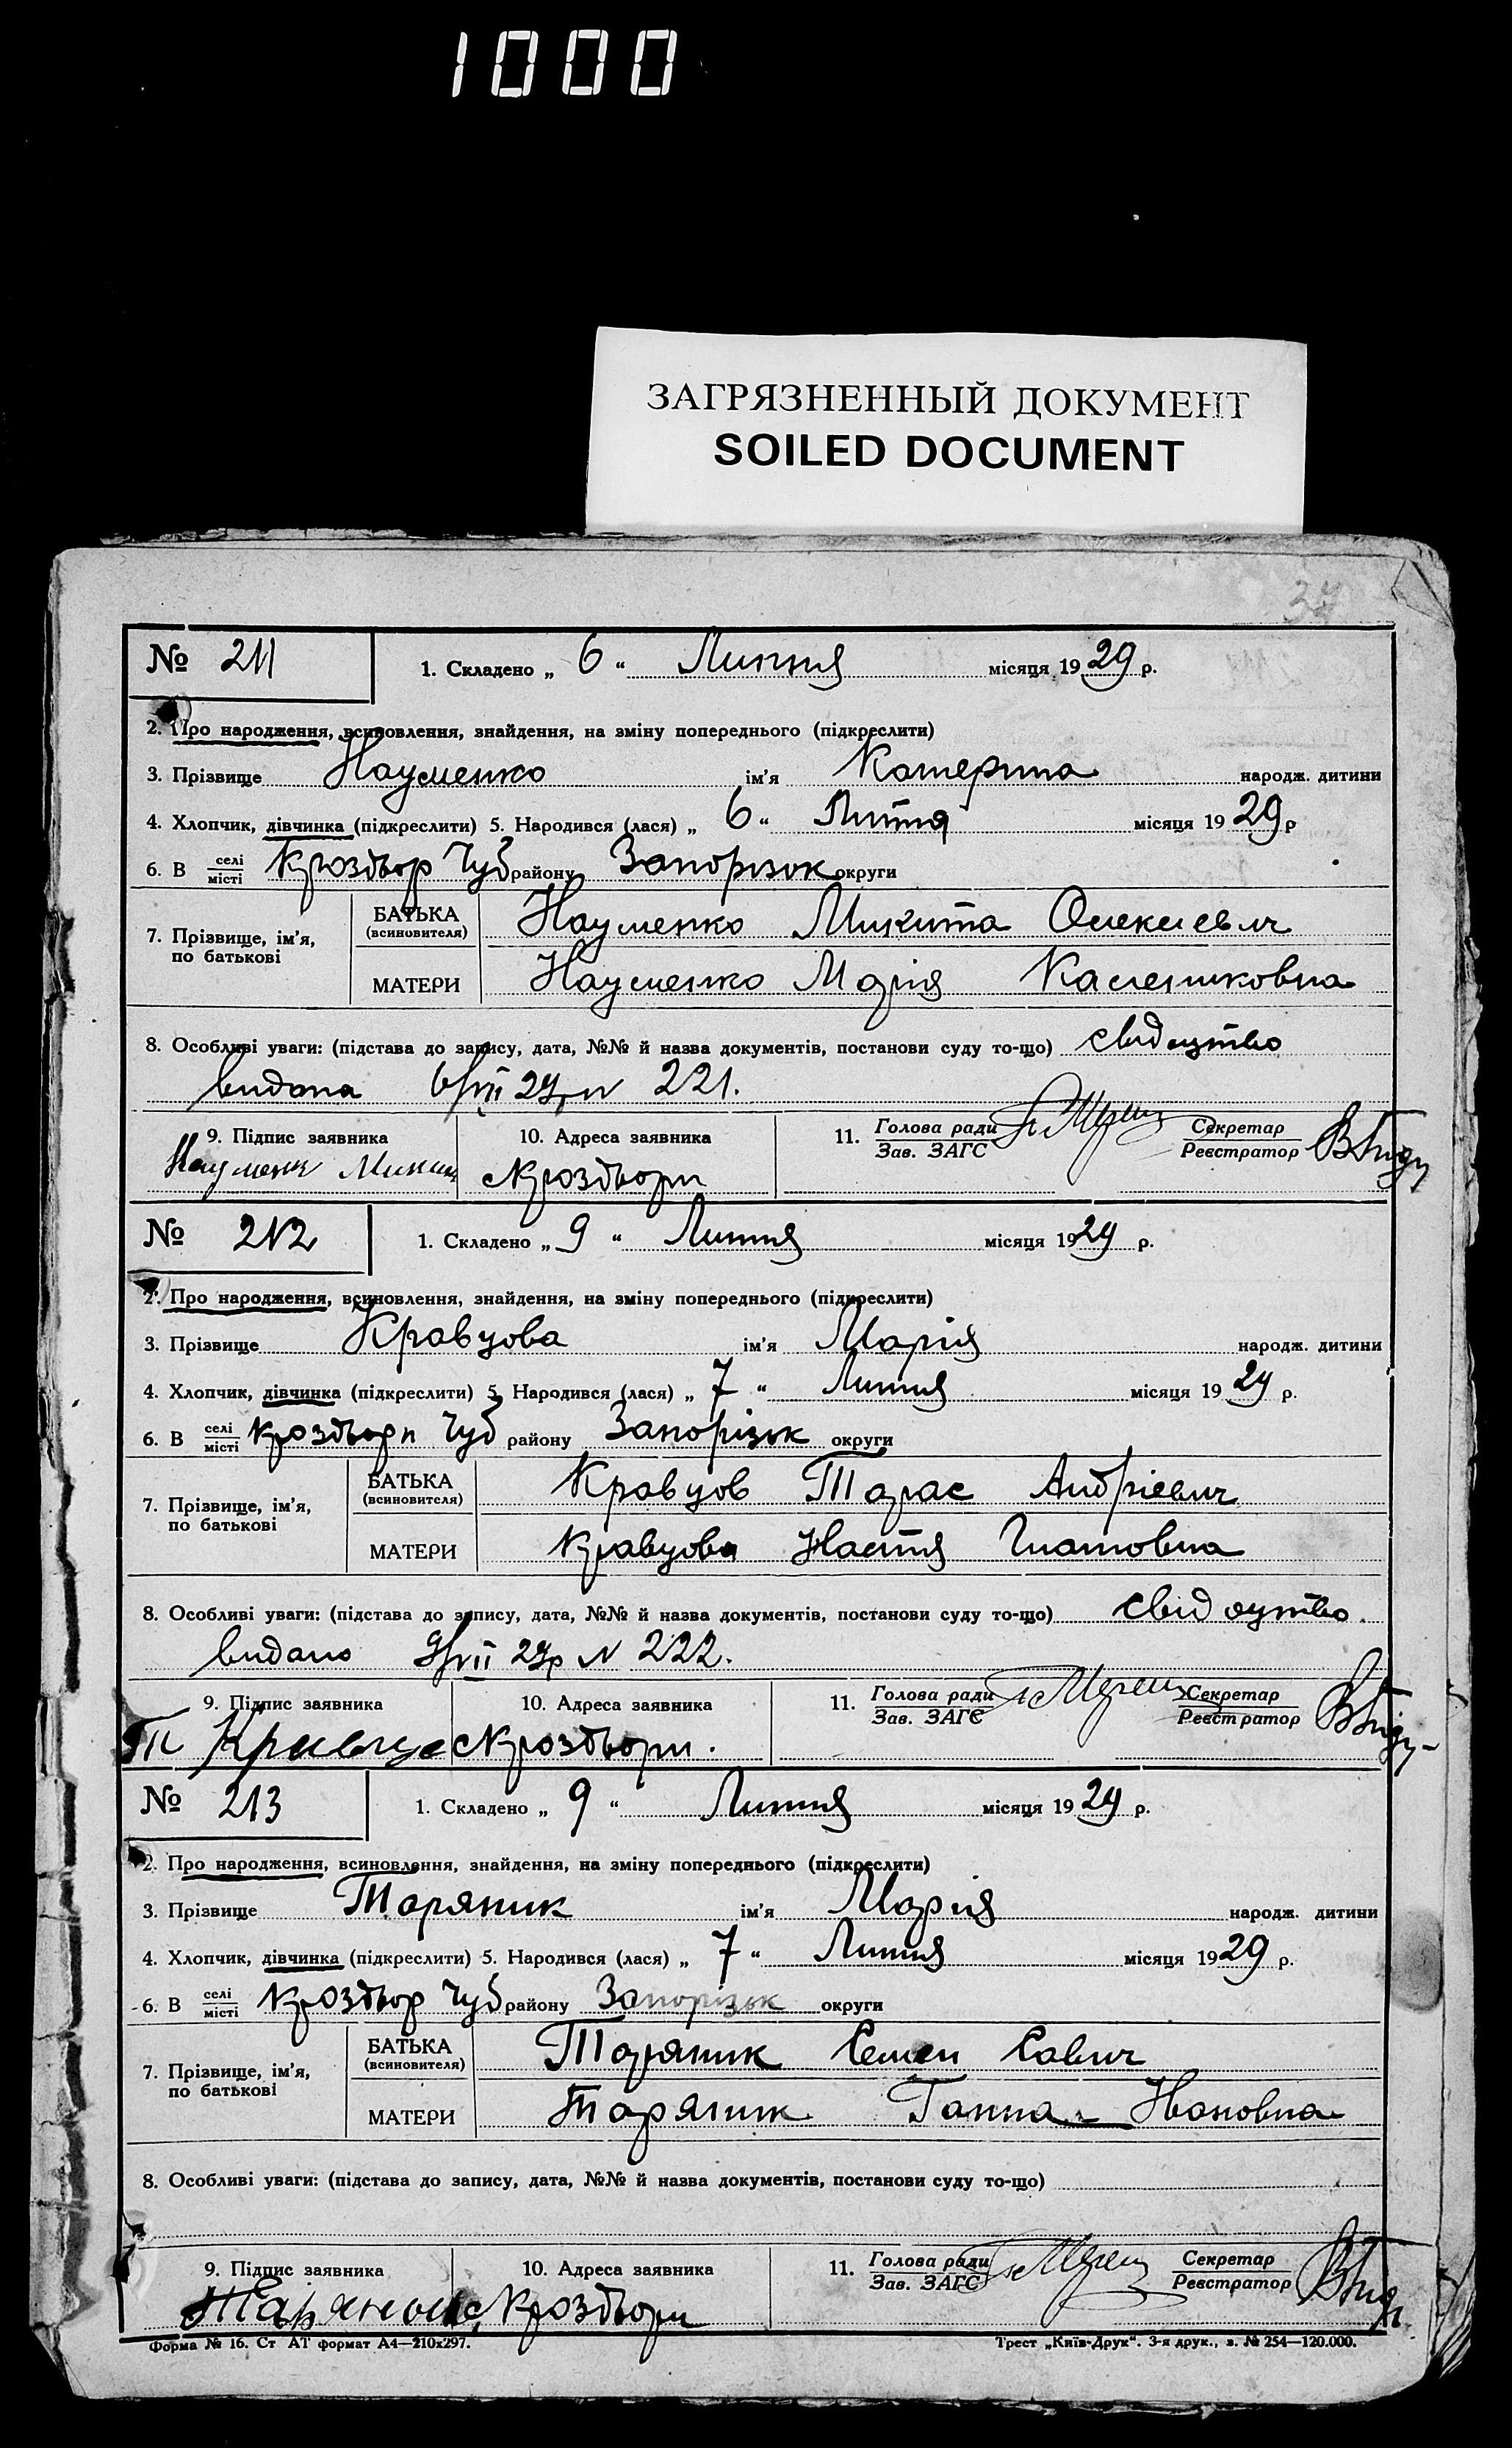 1000
ЗАГРЯЗНЕННЫЙ ДОКУМЕНТ
SOILED DOCUMENT
37
№ 211 1. Складено „ 6 “ Липня місяця 1929 р.
2. Про народження, всиновлення, знайдення, на зміну попереднього (підкреслити)
3. Прізвище Науменко ім’я Катерина народж. дитини
4. Хлопчик, дівчинка (підкреслити) 5. Народився (лася) „ 6 “ Липня місяця 1929 р
6. В селі місті Кроздвор Чуб району Запорізьк округи
7. Прізвище, ім’я, по батькові
БАТЬКА (всиновителя) Науменко Микита Олексієвич
МАТЕРИ Науменко Марія Калениковна
8. Особливі уваги: (підстава до запису, дата, №№ й назва документів, постанови суду то-що) свідоцтво
видана 6/VII 29р N 221.
9. Підпис заявника 10. Адреса заявника 11. Голова ради Зав. ЗАГС Секретар Реєстратор
Кроздвори
№ 212 1. Складено „ 9 “ Липня місяця 1929 р.
2. Про народження, всиновлення, знайдення, на зміну попереднього (підкреслити)
3. Прізвище Кравцова ім’я Марія народж. дитини
4. Хлопчик, дівчинка (підкреслити) 5. Народився (лася) „ 7 “ Липня місяця 1929 р.
6. В селі місті Кроздвори Чуб району Запорізьк округи
7. Прізвище, ім’я, по батькові
БАТЬКА (всиновителя) Кравцов Тарас Андрієвич
МАТЕРИ Кравцова Настя Гнатовна
8. Особливі уваги: (підстава до запису, дата, №№ й назва документів, постанови суду то-що) свідоцтво
видано 9/VII 29р N 222.
9. Підпис заявника 10. Адреса заявника 11. Голова ради Зав. ЗАГС Секретар Реєстратор
Кроздвори.
№ 213 1. Складено „ 9 “ Липня місяця 1929 р.
2. Про народження, всиновлення, знайдення, на зміну попереднього (підкреслити)
3. Прізвище Таряник ім’я Марія народж. дитини
4. Хлопчик, дівчинка (підкреслити) 5. Народився (лася) „ 7 “ Липня місяця 1929 р.
6. В селі місті Кроздвор Чуб району Запорізьк округи
7. Прізвище, ім’я, по батькові
БАТЬКА (всиновителя) Таряник Семен Савич
МАТЕРИ Таряник Ганна - Ивановна
8. Особливі уваги: (підстава до запису, дата, №№ й назва документів, постанови суду то-що)
9. Підпис заявника 10. Адреса заявника 11. Голова ради Зав. ЗАГС Секретар Реєстратор
Кроздвори
Форма № 16. Ст АТ формат А4—210х297. Трест „Київ-Друк“. 3-я друк., з. № 254—120.000.